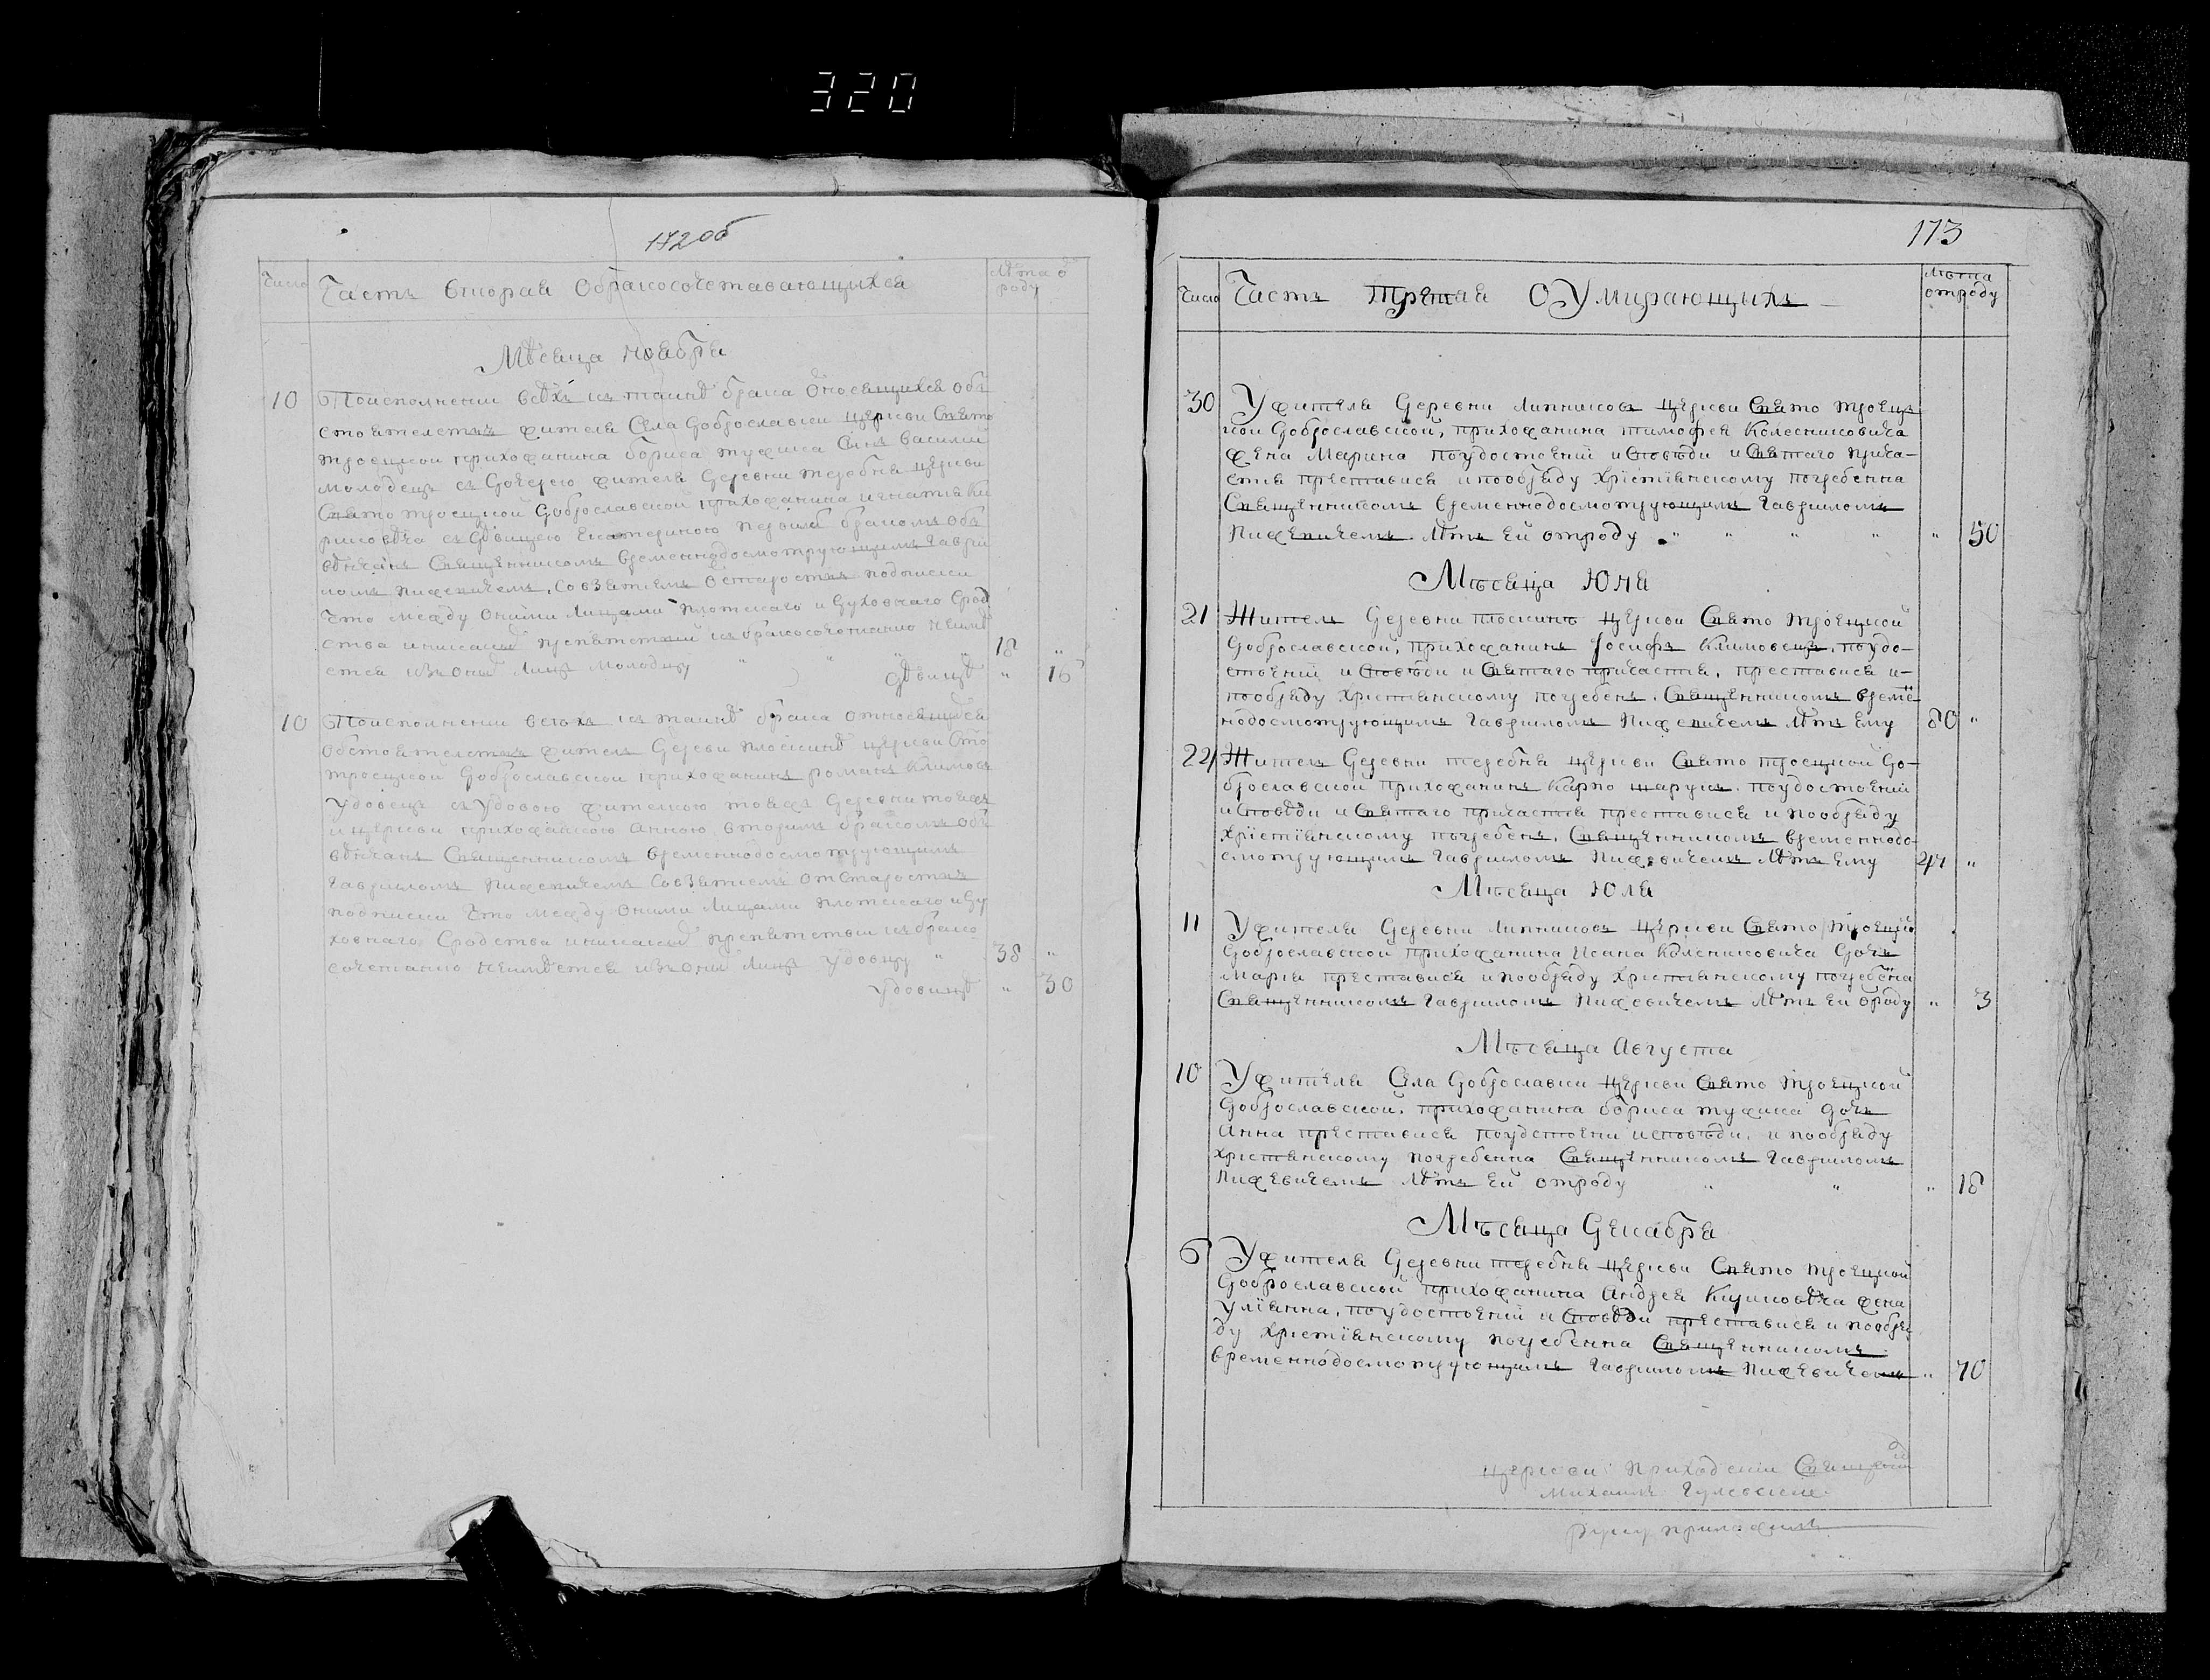 320
172 об
Число
Часть вторая О бракосочетавающихся
Лѣта о
роду
Мѣсяца ноября
10 По исполненіи всѣхъ къ таинѣ брака относящихся об
стоятелствъ жителя Села Доброславки церкви Свято
троецкой прихожанина бориса тужика Синъ василий
молодецъ съ дочерю жителя деревни теребня церкви
Свято троецкой доброславской прихожанина игнатія Ки
риковѣча съ дѣвицею Екатериною первымъ бракомъ об
вѣнчанъ Священникомъ временнодосмотрующимъ гаврії
ломъ Пижевичемъ, Совзятіемъ о старостъ подписки
что между оними лицами плотскаго и духовнаго Срод
ства иникакой препятствій къ бракосочетанию неимѣ
ется изъ онихъ лицъ молодцу " " " 18 "
дѣвицѣ " 16
10 По исполненіи всѣхъ къ таинѣ брака относящихся
обстоятелствъ житель деревни плоскинѣ церкви Сто
троецкой доброславской прихожанинъ романъ Климовъ
удовецъ съ удовою жителкою тояжъ деревни тояжъ
и церкви прихожанкою анною, вторимъ бракомъ об
вѣнчанъ Священникомъ временнодосмотрующимъ
гавриломъ Пижевичемъ Совзятіемъ от старостъ
подписки что между оними лицами плотскаго и ду
ховнаго Сродства иникакой препятствій къ брако
сочетанию неимѣется изъ онихъ лицъ удовцу " 38 "
удовицѣ " 30
173
Число
Часть третая О умирающихъ
Лѣта
отроду
30 У жителя деревни липниковъ церкви Свято троец
кой доброславской, прихожанина тимофея Колесниковича
жена Марина по удостоеній исповѣди и Святаго прича-
стія преставися и по обряду Хрістіянскому погребенна
Священникомъ временнодосмотрующимъ гавриломъ
Пижевичемъ. Лѣтъ Ей отроду " " " " " 50
Мѣсяца Юня
21 Житель деревни плоскинь церкви Свято троецкой
доброславской, прихожанинъ Іосифъ Климовецъ, по удо-
стоеній исповѣди и Святаго причастія, преставися и-
по обряду Христіянскому погребенъ. Священникомъ време
нодосмотрующимъ гавриломъ Пижевичемъ лѣтъ Ему 80 "
22 Житель деревни теребня церкви Свято троецкой до-
брославской прихожанинъ Карпо шарукъ. по удостоеній
исповѣди и Святаго причастія преставися и по обряду
Хрістіянскому погребенъ. Священникомъ временнодо-
смотрующимъ гавриломъ Пижевичемъ лѣтъ Ему "
Мѣсяца Юля
11 У жителя деревни липниковъ церкви Свято троецкой
доброславской прихожанина Ивана Колесниковича дочь
Марія преставися и по обряду Христіянскому погребена
Священникомъ гавриломъ Пижевичемъ лѣтъ Ей ороду " 3
Мѣсяца Августа
10 У жителя Села доброславки церкви Свято троецкой
доброславской, прихожанина бориса тужика дочь
Анна преставися поудстоени исповѣди, и по обряду
Христіянскому погребенна Священникомъ гавриломъ
Пижевичемъ Лѣтъ Ей отроду " " " 18
Мѣсяца Декабря
6 У жителя деревни теребня церкви Свято троецкой
доброславской прихожанина Андрея Кириковѣча жена
Уліянна, по удостоеній исповѣди преставися и по обря
ду Христіянскому погребенна Священникомъ
временнодосмотрующимъ гавриломъ Пижевичемъ " 70
церкви Приходскій Священник
Михаилъ
руку приложилъ